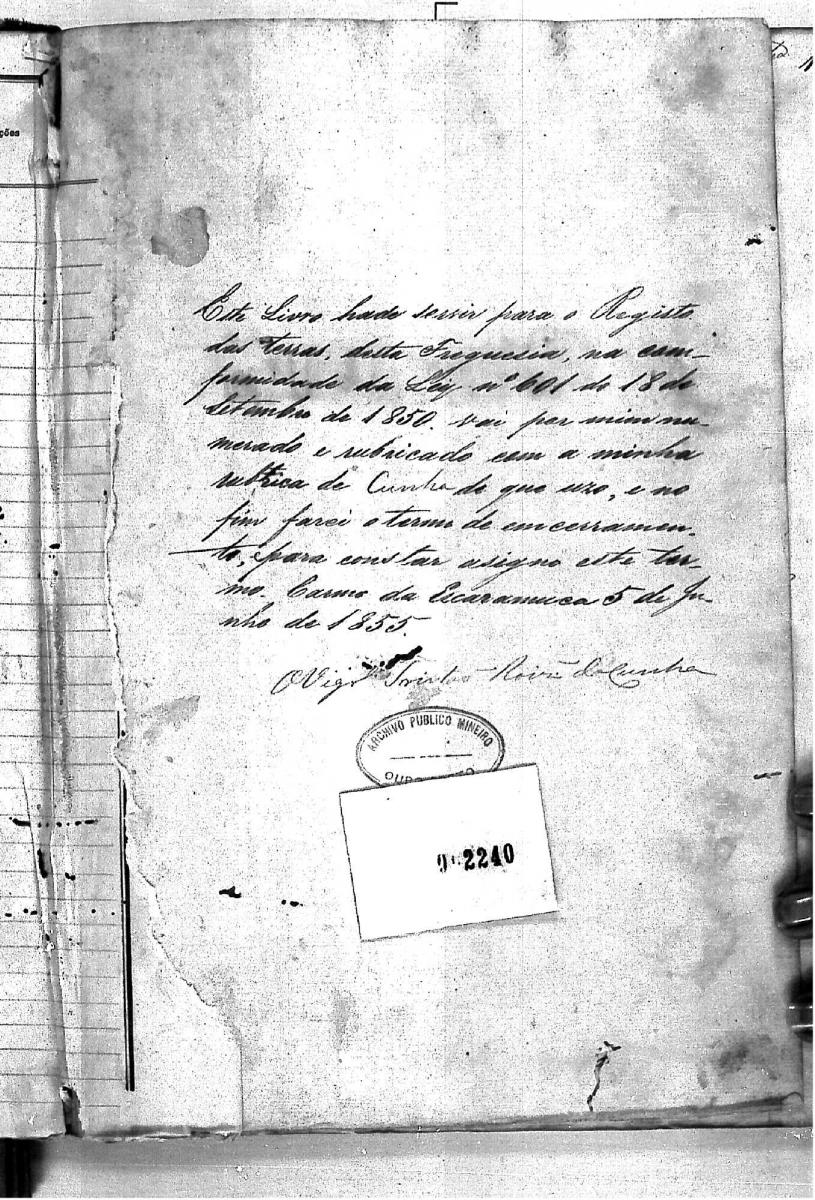 ções
Este Livro hade servir para o Registo
das terras, desta Freguesia, na com-
formidade da Ley nº 601 de 18 de
Setembro de 1850. vai por mim nu-
merado e rubricado com a minha
rubrica de Cunha de que uzo, e no
fim farei o termo de emcerramen-
to, e para constar asigno este ter-
mo. Carmo da Escaramuca 5 de Ju-
nho de 1855.
O Vigrº da Cunha
ARCHIVO PUBLICO MINEIRO
2240